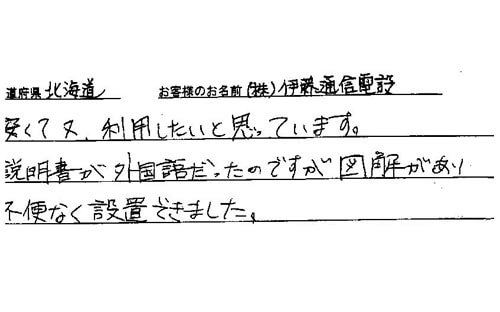 道府県 北海道 お客様のお名前 (株)伊藤通信電設
安くて又、利用したいと思っています。
説明書が外国語だったのですが図解があり
不便なく設置できました。